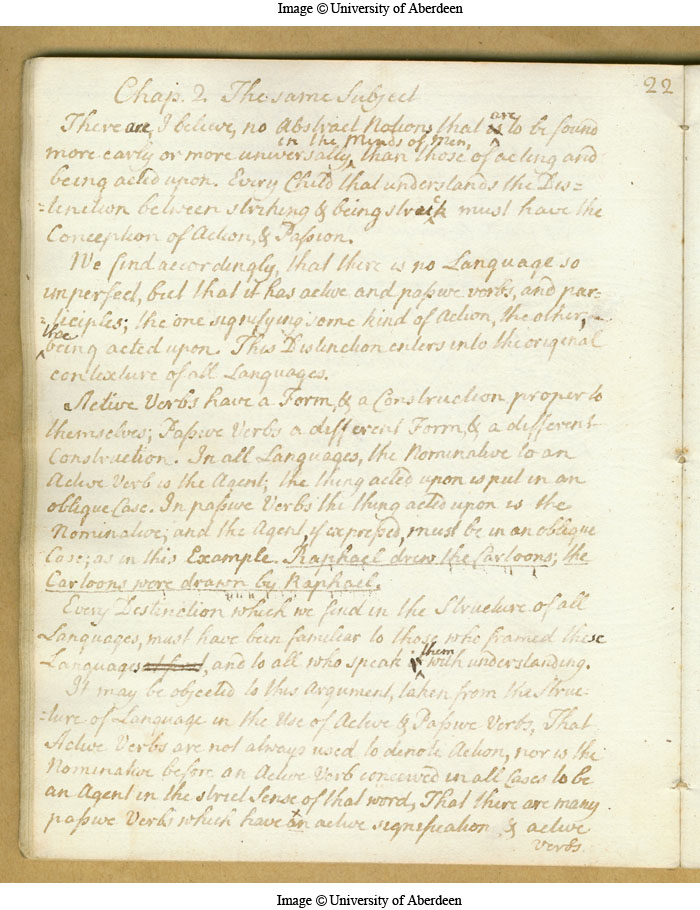 Image © University of Aberdeen
22
Chap. 2. The same Subject
There are, I believe, no Abstract Notions that is are to be found
in the minds of men,
more early or more universally, than those of acting and
being acted upon. Every Child that understands the Dis=
=tinction between striking & being struck must have the
Conception of Action, & Passion.
We find accordingly, that there is no Language so
imperfect, but that it has active and passive verbs, and par=
=ticiples; the one signifying some kind of Action, the other,
the
being acted upon. This Distinction enters into the original
contexture of all Languages.
Active Verbs have a Form, & a Construction proper to
themselves; Passive Verbs a different Form, & a different
Construction. In all Languages, the Nominative to an
Active Verb is the Agent; the thing acted upon is put in an
oblique Case. In passive Verbs the thing acted upon is the
Nominative; and the Agent, if expressed, must be in an oblique
Case; as in this Example. Raphael drew the Cartoons; the
Cartoons were drawn by Raphael.
Every Distinction which we find in the Structure of all
Languages, must have been familiar to those who framed these
Languages, and to all who speak them with understanding.
It may be objected to this Argument, taken from the Struc=
=ture of Language in the Use of Active & Passive Verbs, That
Active Verbs are not always used to denote Action, nor is the
Nominative before an Active Verb conceived in all Cases to be
an Agent in the strict Sense of that word, That there are many
passive Verbs which have an active signification & active
verbs
Image © University of Aberdeen